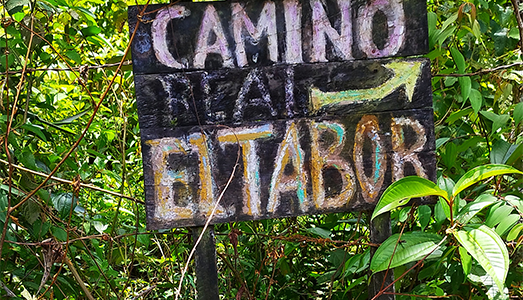 CAMINO
REAL
ElTABOR